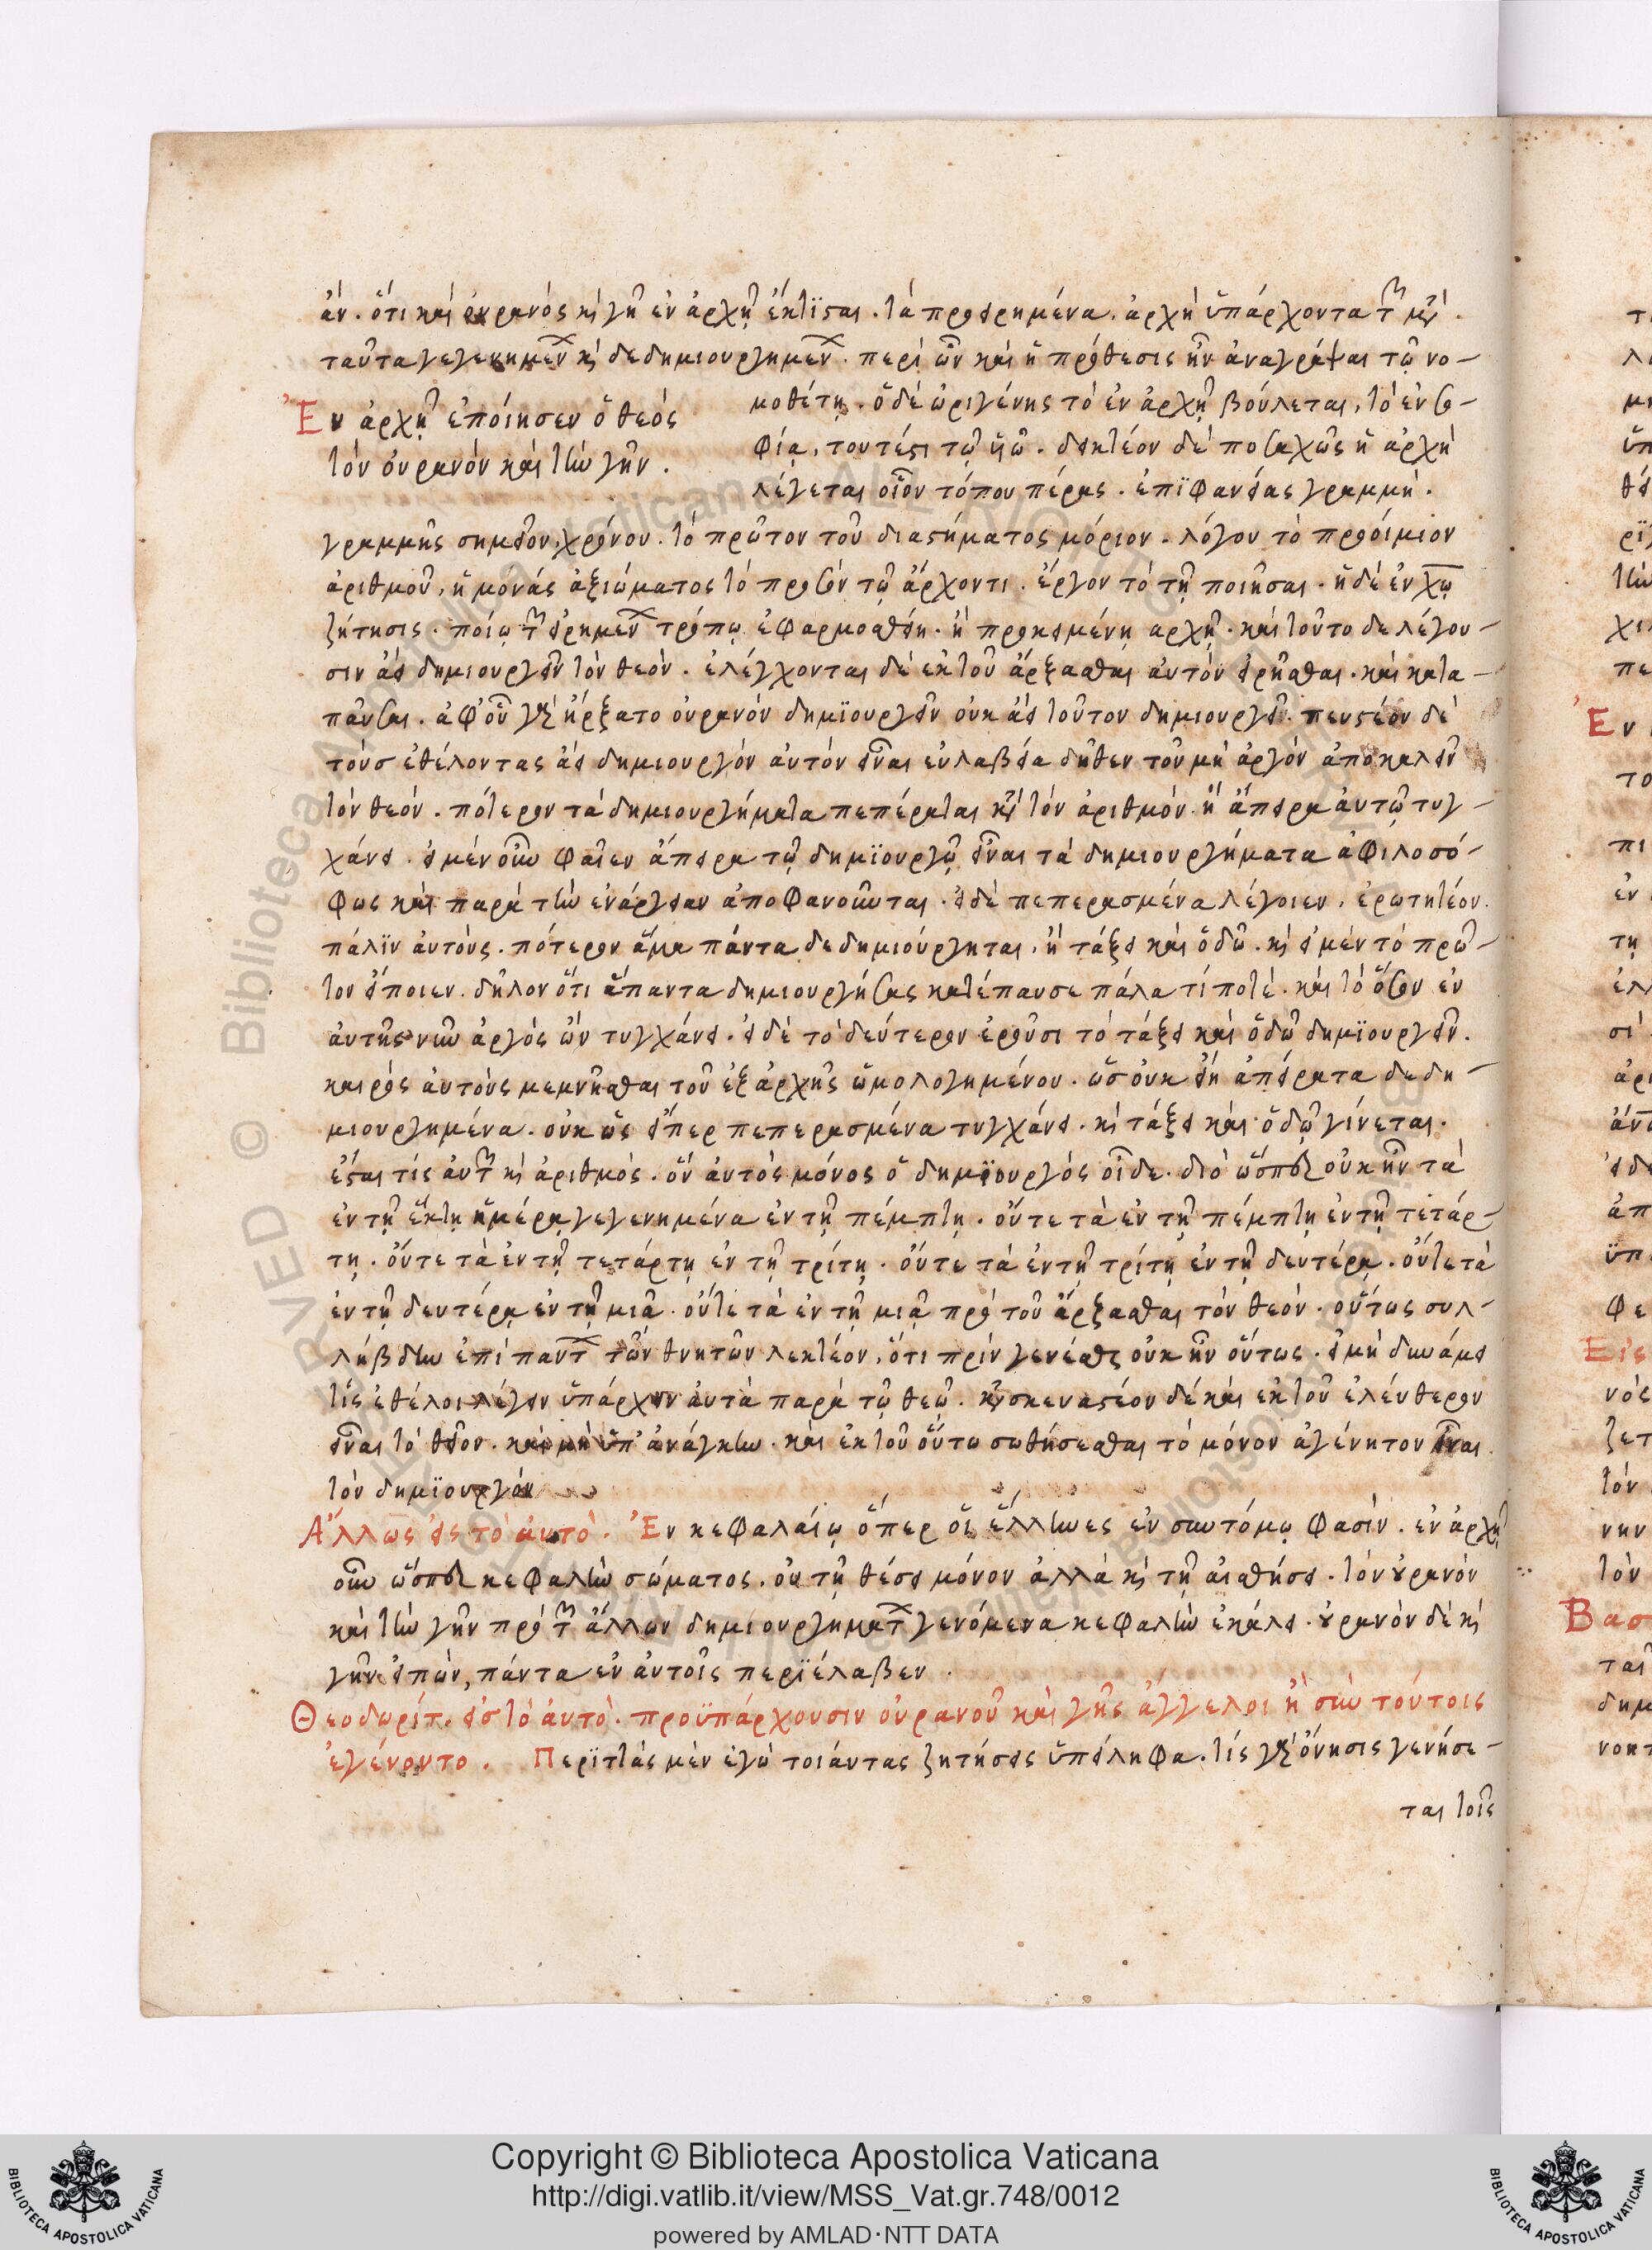 ἀν. ὅτι καὶ οὐρανὸς κὶ γῆ ἐν ἀρχῇ ἔκτϊσται. τὰ προειρημένα. ἀρχὴ ὑπάρχοντα τ
ταῦτα γεγενημεν κὶ δεδημιουργημεν. περὶ ὧν καὶ ἡ πρόθεσις ἦν ἀναγράψαι τῷ νο-
μοθέτῃ. ὁ δὲ ὠριγένης τὸ ἐν ἀρχῇ βούλεται, τὸ ἐν σο-
Ἐν ἀρχῇ ἐποίησεν ὁ θεός
φίᾳ, τουτέστι τῷ ῡῶ. δεικτέον δὲ ποσαχῶς ἡ ἀρχὴ
τὸν οὐρανὸν καὶ τὴν γῆν.
λέγεται οἷον τόπου πέρας. ἐπϊφανείας γραμμή.
γραμμῆς σημεῖον, χρόνου. τὸ πρῶτον τοῦ διαστήματος μόριον. λόγου τὸ προοίμιον
ἀριθμοῦ, ἡ μόνάς ἀξιώματος τὸ προσὸν τῷ ἄρχοντι. ἔργον τὸ τῇ ποιῆσαι. ἡ δὲ ἐν χω
ζήτησις. ποίῳ τ εἰρημεν τρόπῳ ἐφαρμοσθείη. ἡ προκειμένη αρχῇ. καὶ τοῦτο δε λέγου-
σιν ἀεὶ δημιουργεῖν τὸν θεόν. ἐλέγχονται δὲ ἐκ τοῦ ἄρξασθαι αὐτὸν εἰρῆσθαι. καὶ κατα-
παῦσαι. ἀφ' οὗ γὰρ ἤρξατο οὐρανὸν δημϊουργεῖν οὐκ ἀεὶ τοῦτον δημιουργεῖ. πευστέον δὲ
τούσ ἐθέλοντας ἀεὶ δημιουργὸν αὐτὸν εἶναι εὐλαβείᾳ δῆθεν τοῦ μὴ ἀργὸν ἀποκαλεῖν
τὸν θεόν. πότερον τὰ δημιουργήματα πεπέραται κατὰ τὸν ἀριθμὸν ἢ ἄπειρα αὐτῷ τυγ-
χάνει. εἰ μὲν οὖν φαῖεν ἄπειρα τῷ δημϊουργῷ εἶναι τὰ δημιουργήματα ἀφιλοσό-
φως καὶ παρὰ τὴν ἐνάργειαν ἀποφανοῦνται. εἰ δὲ πεπερασμένα λέγοιεν, ἐρωτητέον.
πάλϊν αὐτούς. πότερον ἅμα πάντα δεδημιούργηται, ἢ τάξει καὶ ὁδῷ. κὶ εἰ μὲν τὸ πρῶ-
τον εἴποιεν. δῆλον ὅτι ἅπαντα δημιουργήσας κατέπαυσε πάλαι τί ποτέ. καὶ τὸ ὅσον ἐν
αὐτῆς νῦν ἀργὸς ὢν τυγχάνει. εἰ δὲ τὸ δεύτερον ἐροῦσι τὸ τάξει καὶ ὁδῷ δημϊουργεῖν.
καιρὸς αὐτοὺς μεμνῆσθαι τοῦ ἐξ ἀρχῆς ὡμολογημένου. ὡς οὐκ ἀπείρατα δεδη-
μιουργημένα. οὐκ ὡς εἴπερ πεπερασμένα τυγχάνει. κὶ τάξει καὶ ὁδῷ γίνεται.
ἔσται τίς αὐτ κὶ ἀριθμός. ὃν αὐτὸς μόνος ὁ δημϊουργὸς οἶδε. διὸ ὥσπερ οὐκ ἦν τὰ
ἐν τῇ ἕκτῃ ἡμέρᾳ γεγενημένα ἐν τῇ πέμπτῃ. οὔτε τὰ ἐν τῇ πέμπτῃ ἐν τῇ τετάρ-
τῃ. οὔτε τὰ ἐν τῇ τετάρτῃ ἐν τῇ τρίτῃ. οὔτε τὰ ἐν τῇ τρίτῃ ἐν τῇ δευτέρᾳ. οὔτε τὰ
ἐν τῇ δευτέρᾳ ἐν τῇ μιᾷ. οὔτε τὰ ἐν τῇ μιᾷ πρὸ τοῦ ἄρξασθαι τὸν θεόν. οὕτως συλ-
λήβδην ἐπὶ παντ τῶν θνητῶν λεκτέον, ὅτι πρὶν γενέσθαι οὐκ ἦν οὕτως. εἰ μὴ δυνάμει
τὶς ἐθέλοι λέγειν ὑπάρχειν αὐτὰ παρὰ τῷ θεῷ. κατασκευαστέον δέ καὶ ἐκ τοῦ ἐλεύθερον
εἶναι τὸ θεῖον. καὶ μὴ ὑπ' ἀνάγκην. καὶ ἐκ τοῦ οὕτω σωθήσεσθαι τὸ μόνον ἀγένητον εἶναι
τὸν δημϊουργόν
Ἄλλως εἰς τὸ αὐτό. Ἐν κεφαλαίῳ ὅπερ οἱ ἕλληνες ἐν συντόμῳ φασίν. ἐν ἀρχῇ
οὖν ὥσπερ κεφαλὴν σώματος. οὐ τῇ θέσει μόνον ἀλλὰ κὶ τῇ αἰσθήσει. τὸν οὐρανὸν
καὶ τὴν γῆν πρὸ τ ἄλλων δημιουργηματ γενόμενα κεφαλὴν ἐκάλει. οὐρανὸν δὲ κὶ
γῆν εἰπὼν, πάντα ἐν αὐτοῖς περϊέλαβεν.
Θεοδωρίτ. εἰσ τὸ αὐτό. προϋπάρχουσιν οὐρανοῦ καὶ γῆς ἄγγελοι ἢ σὺν τούτοις
ἐγένοντο. Περϊττὰς μὲν ἐγὼ τοιάυτας ζητήσεις ὑπείληφα. τίς γὰρ ὄνησις γενήσε-
ται τοῖς
Copyright © Biblioteca Apostolica Vaticana
http://digi.vatlib.it/view/MSS_Vat.gr.748/0012
powered by AMLAD·NTT DATA